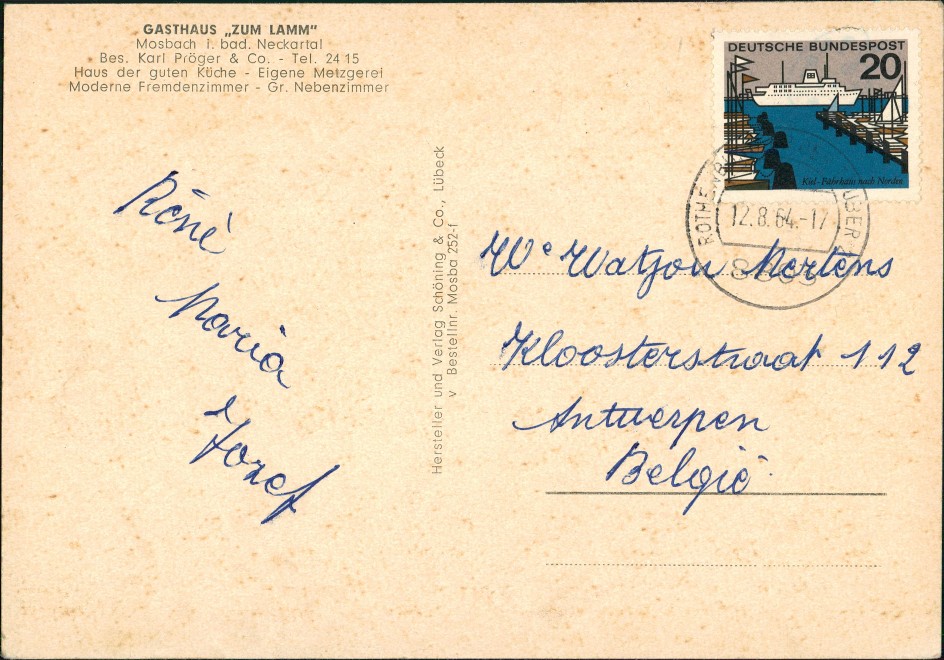 GASTHAUS „ZUM LAMM“
Mosbach i. bad. Neckartal
Bes. Karl Pröger & Co. - Tel. 24 15
Haus der guten Küche - Eigene Metzgerei
Moderne Fremdenzimmer - Gr. Nebenzimmer
Réné
Maria
Jozef
Hersteller und Verlag Schöning & Co., Lübeck
v Bestellnr. Mosba 252-f
DEUTSCHE BUNDESPOST
20
Kiel-Fährhafen nach Norden
12.8.64.-17
We Watzon Mertens
Kloosterstraat 112
Antwerpen
België